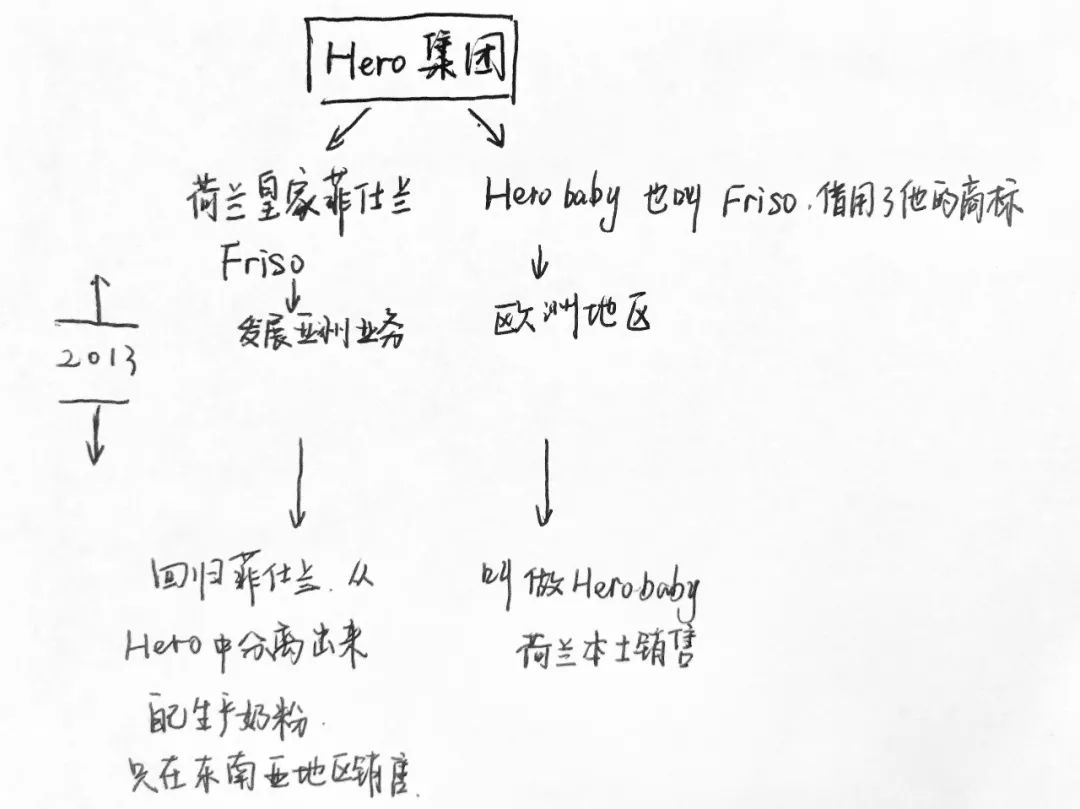 Hero 集团
荷兰皇家菲仕兰
Hero baby 也叫 Friso. 借用了他的商标
Friso
发展亚洲业务
欧洲地区
2013
回归菲仕兰. 从
Hero 中分离出来
自己生产奶粉.
只在东南亚地区销售.
叫做 Herobaby
荷兰本土销售